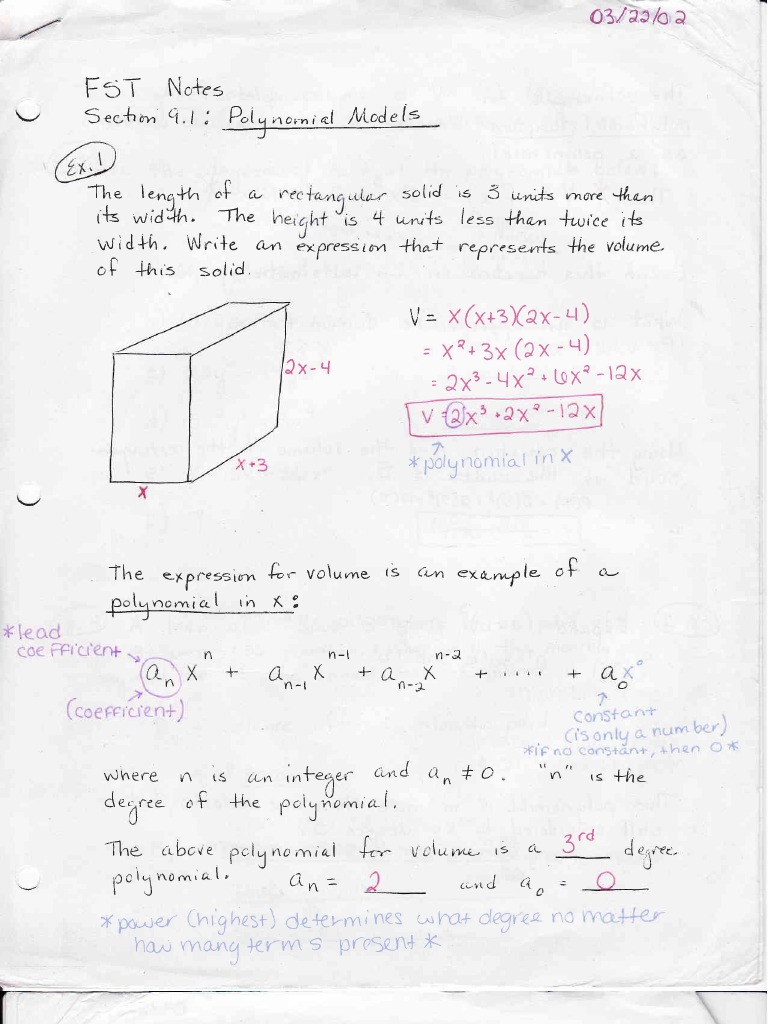 03/22/02
FST Notes
Section 9.1: Polynomial Models
Ex. 1
The length of a rectangular solid is 3 units more than
its width. The height is 4 units less than twice its
width. Write an expression that represents the volume
of this solid.
2x-4
x+3
x
V = x(x+3)(2x-4)
= x²+3x(2x-4)
= 2x³-4x²+6x²-12x
V=2x³+2x²-12x
*polynomial in x
The expression for volume is an example of a
polynomial in x:
*lead
coefficient
(coefficient)
aₙxⁿ + aₙ₋₁xⁿ⁻¹ + aₙ₋₂xⁿ⁻² + ..... + a₀x⁰
constant
(is only a number)
*if no constant, then 0*
where n is an integer and aₙ ≠ 0. "n" is the
degree of the polynomial.
The above polynomial for volume is a 3rd degree
polynomial. aₙ = 2 and a₀ = 0
*power (highest) determines what degree no matter
how many terms present*